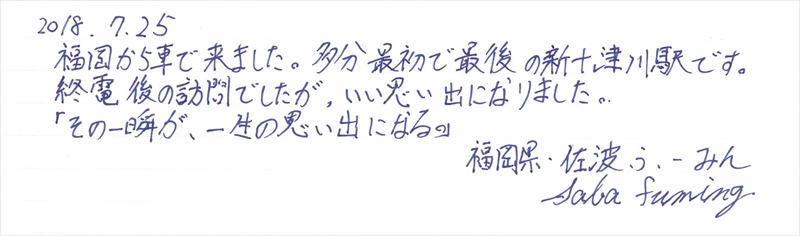 2018.7.25
福岡から車で来ました。多分最初で最後の新十津川駅です。
終電後の訪問でしたが、いい思い出になりました。
「その一瞬が、一生の思い出になる」
福岡県・佐波ふーみん
Saba fuming